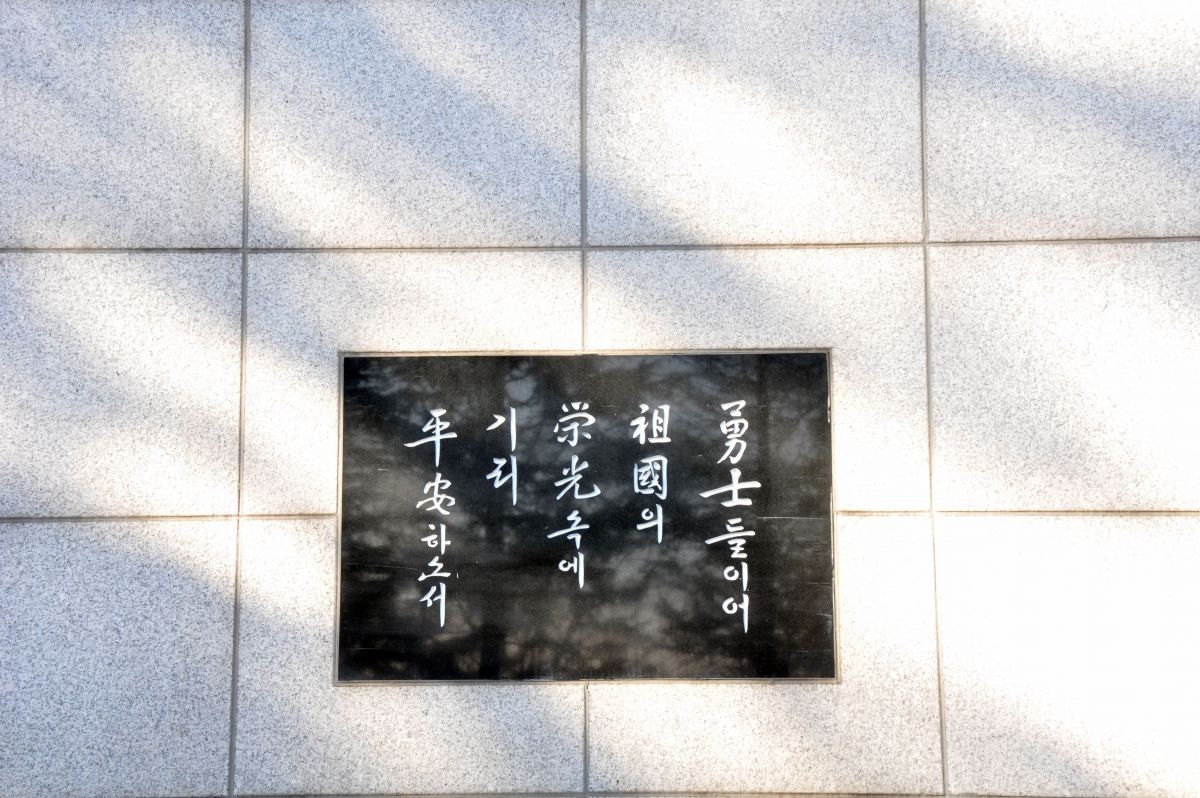 勇士들이어
祖國의
榮光속에
기리
平安하소서